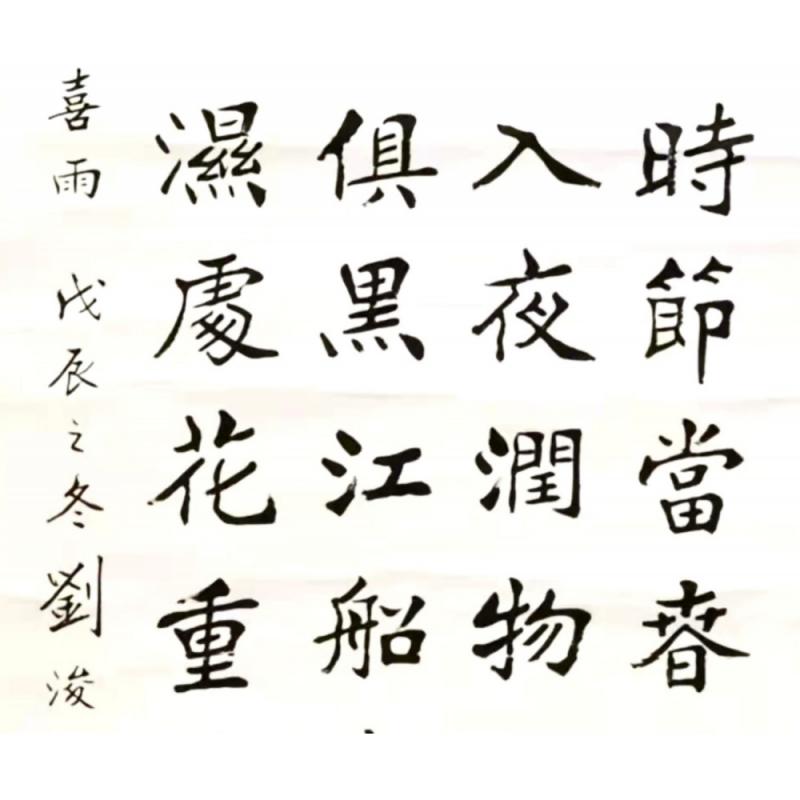 時節當春
入夜潤物
俱黑江船
濕處花重
喜雨 戊辰之冬 劉浚